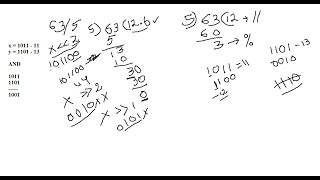 x = 1011 - 11
y = 1101 - 13
AND
1011
1101
1001
63/5
x << 2
101100
101100
x >> 2
0010
5) 63 (12.6
5
30
30
0
x >> 1
0101
5) 63 (12 → 11
60
3 → %
1011 = 11
1100
-12
1101 - 13
0010
1110